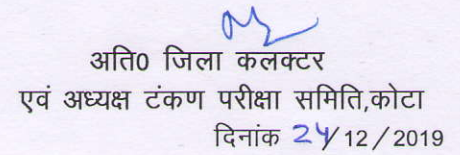 अति0 जिला कलक्टर
एवं अध्यक्ष टंकण परीक्षा समिति,कोटा
दिनांक 24/12/2019